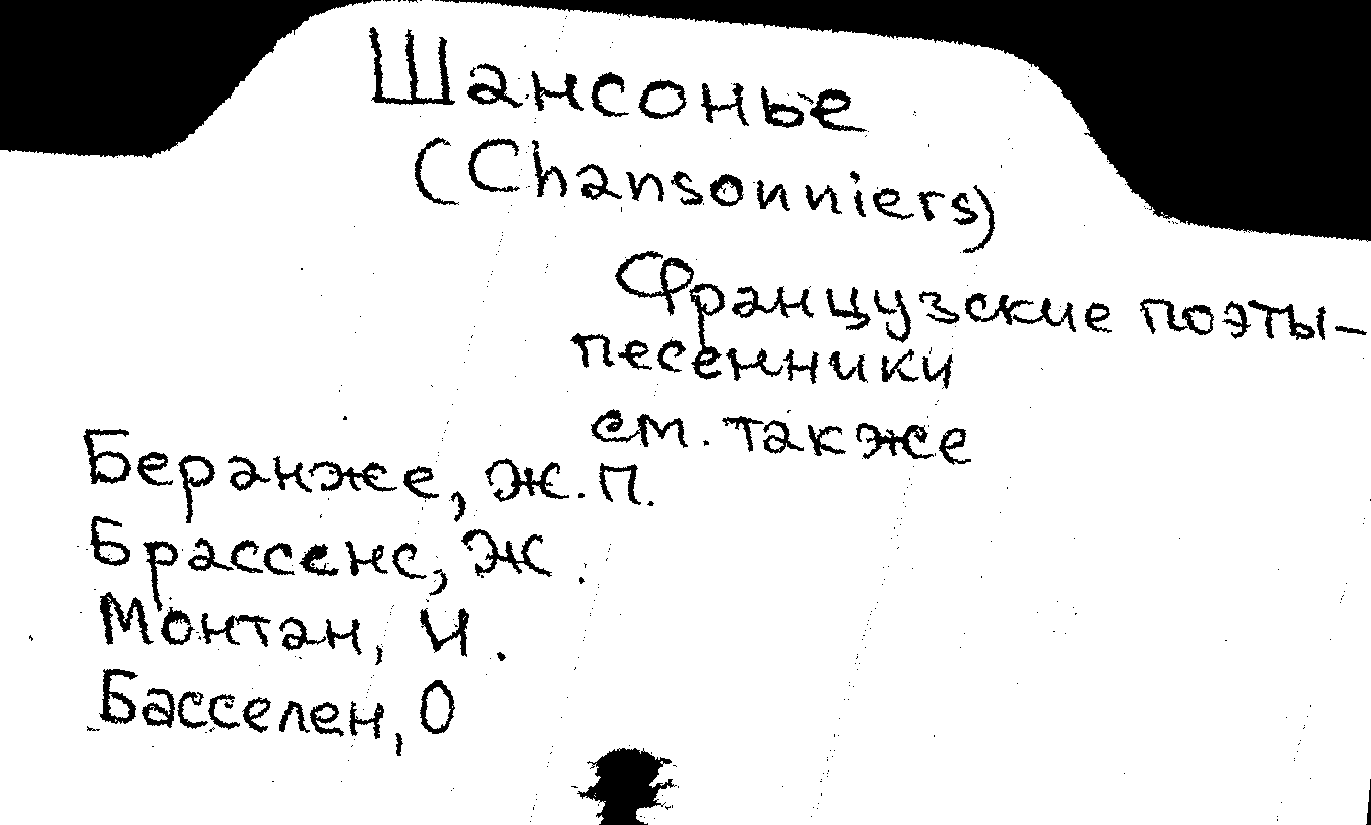 Шансонье
(Chansonniers)
Французские поэты-
песенники
см. также
Беранже, Ж.П.
Брассенс, Ж.
Монтан, И.
Басселен, О